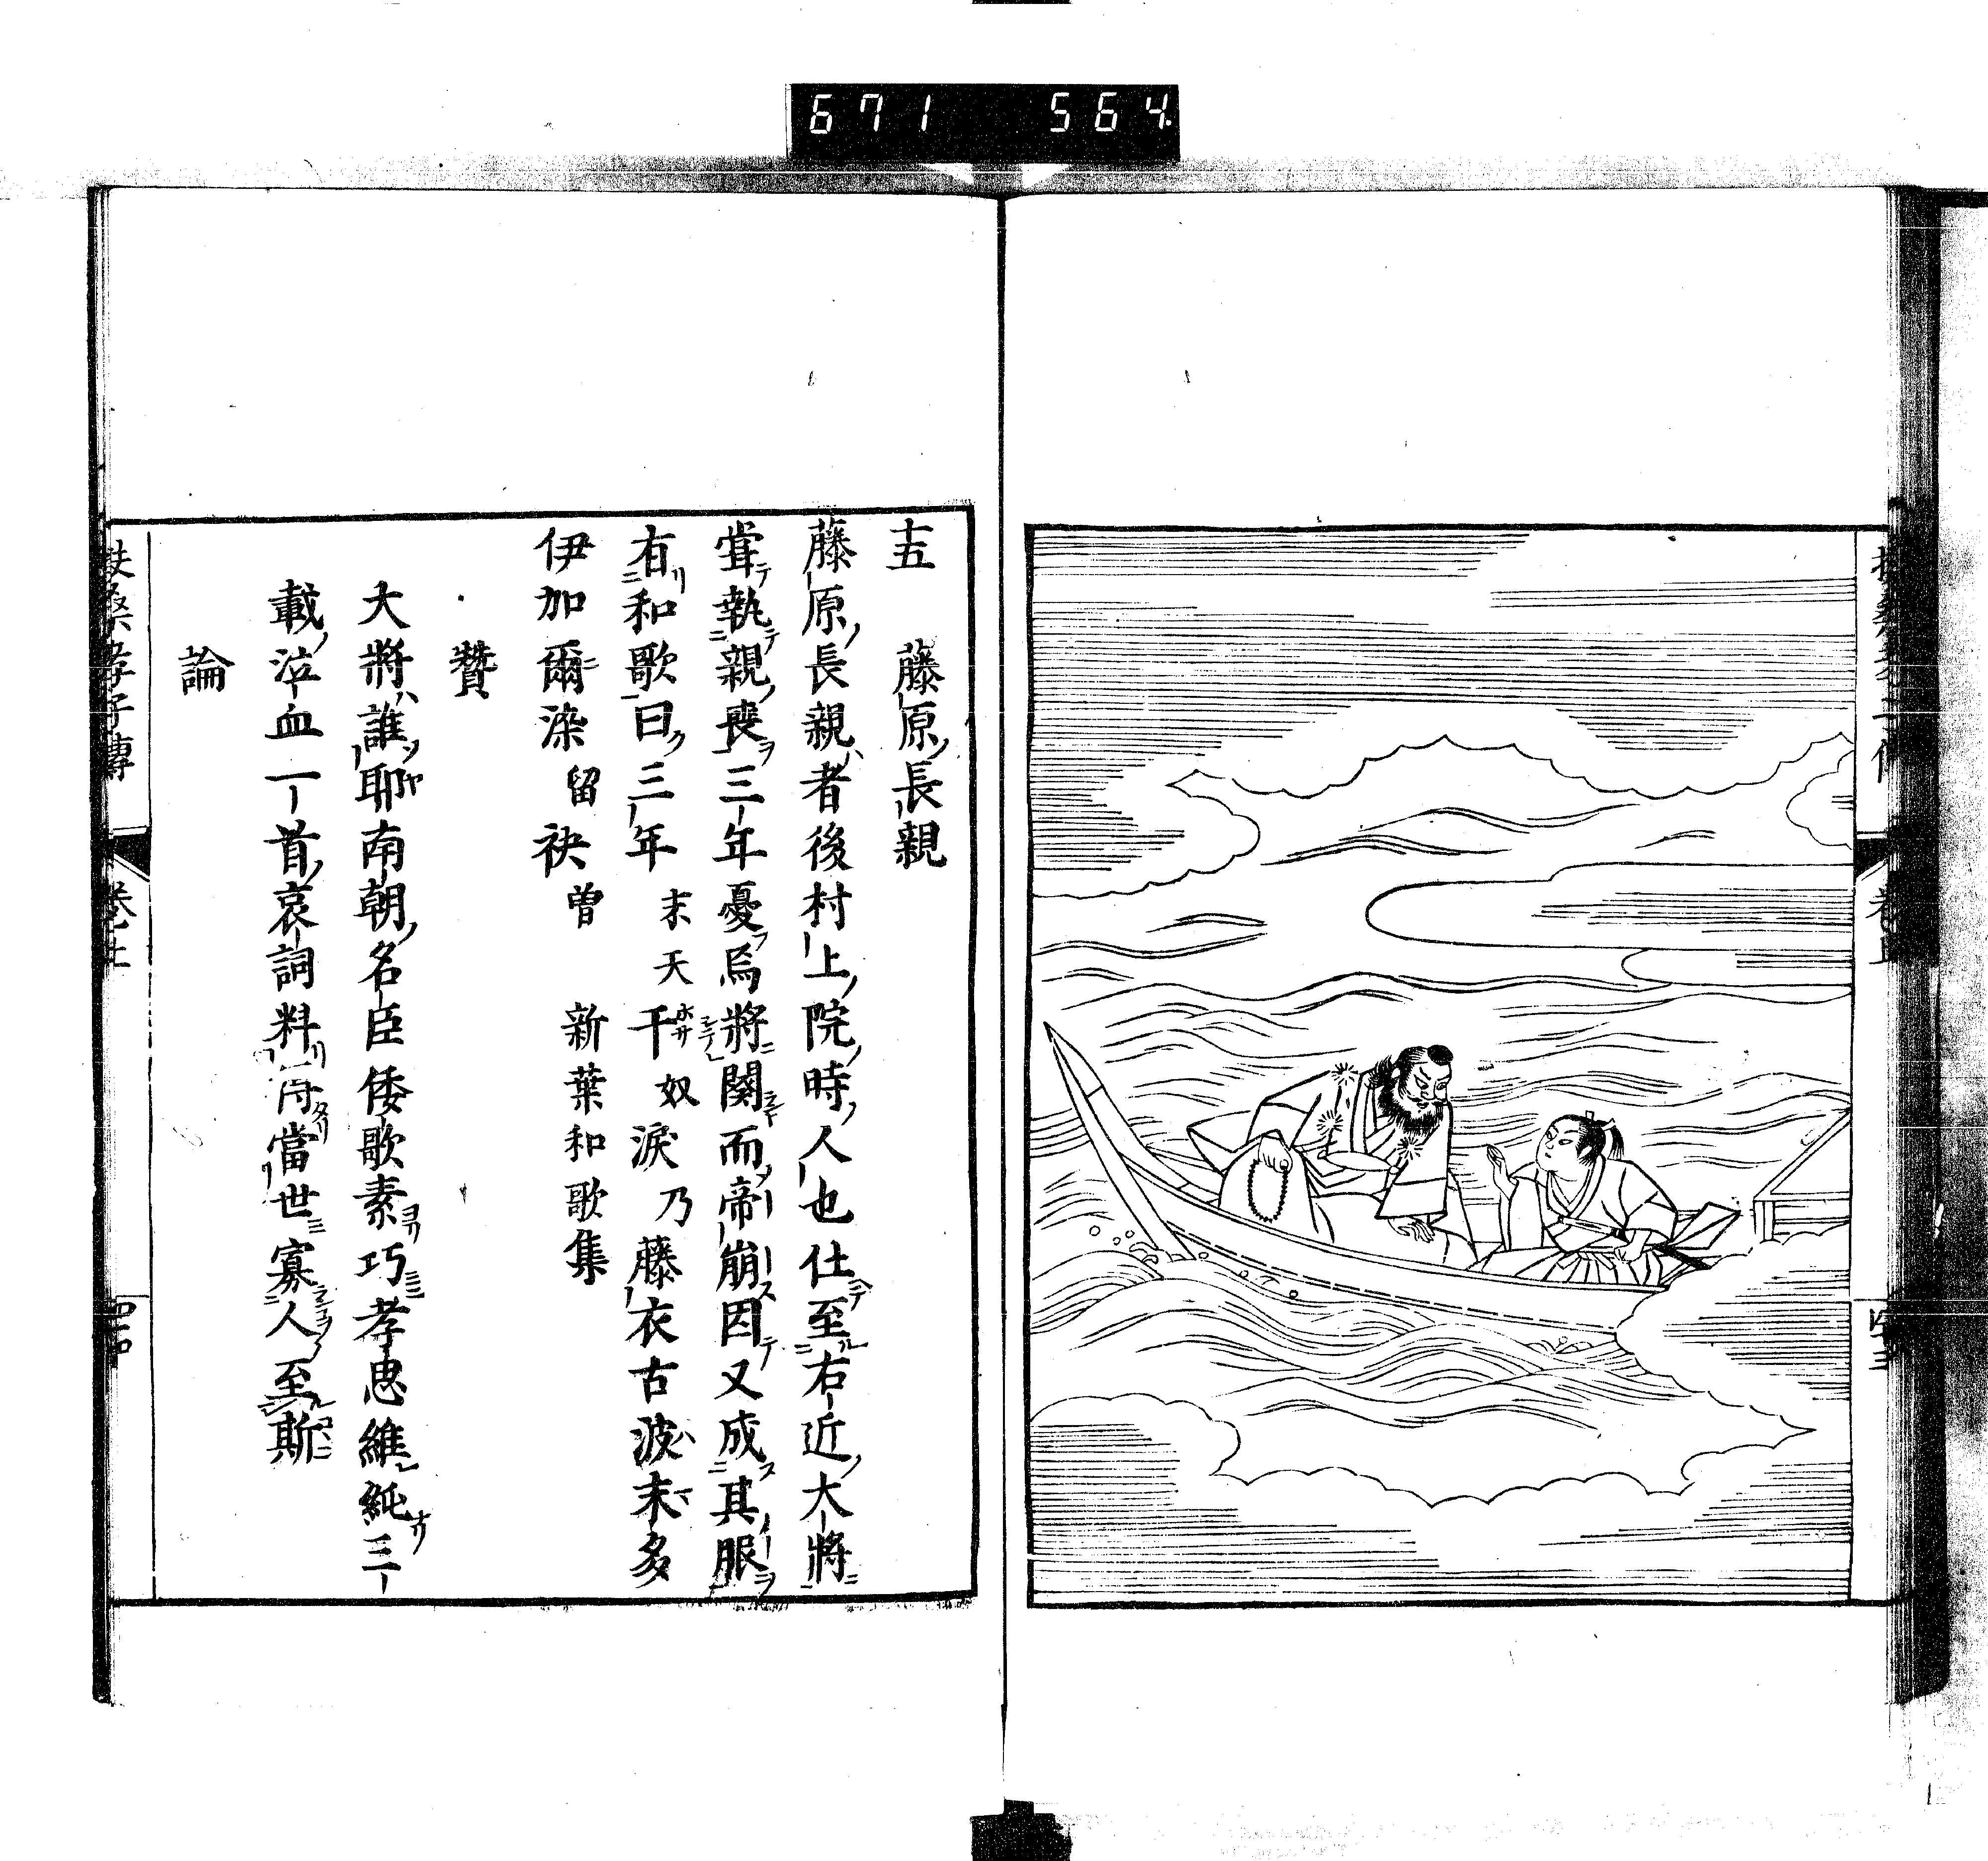 671 564
十五 藤原長親
藤原長親者後村上院時人也仕至右近大將
嘗執親喪三年憂焉將闋而帝崩因又成其服
有和歌曰三年末天千奴淚乃藤衣古波末多
伊加爾染留袂曽 新葉和歌集
贊
大將誰耶南朝名臣倭歌素巧孝思維純三
載泣血一首哀詞料得當世寡人至斯
論
扶桑孝子傳